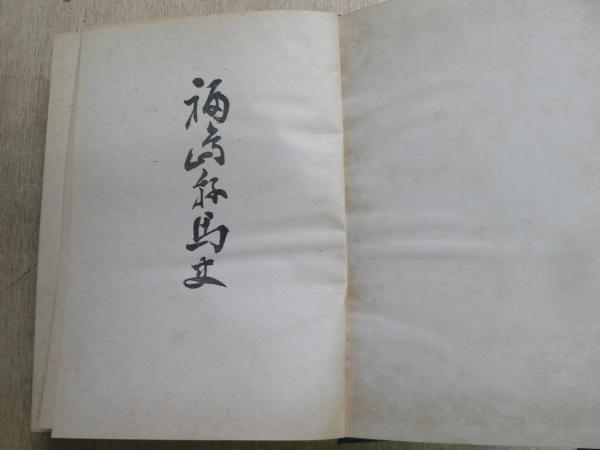 福島競馬史